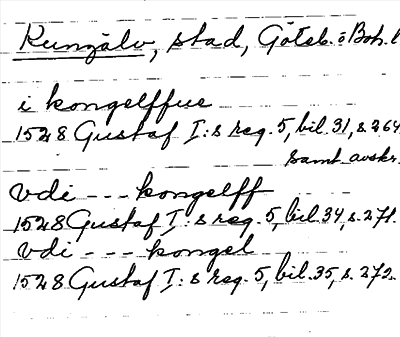 Kungälv, stad, Göteb. o Boh. l
i kongelffue
1528 Gustaf I:s reg. 5, bil. 31, s. 264
samt. avskr.
vdi - - - kongelff
1528 Gustaf I:s reg. 5, bil. 34, s. 271.
vdi - - - kongel
1528 Gustaf I:s reg. 5, bil. 35, s. 272.